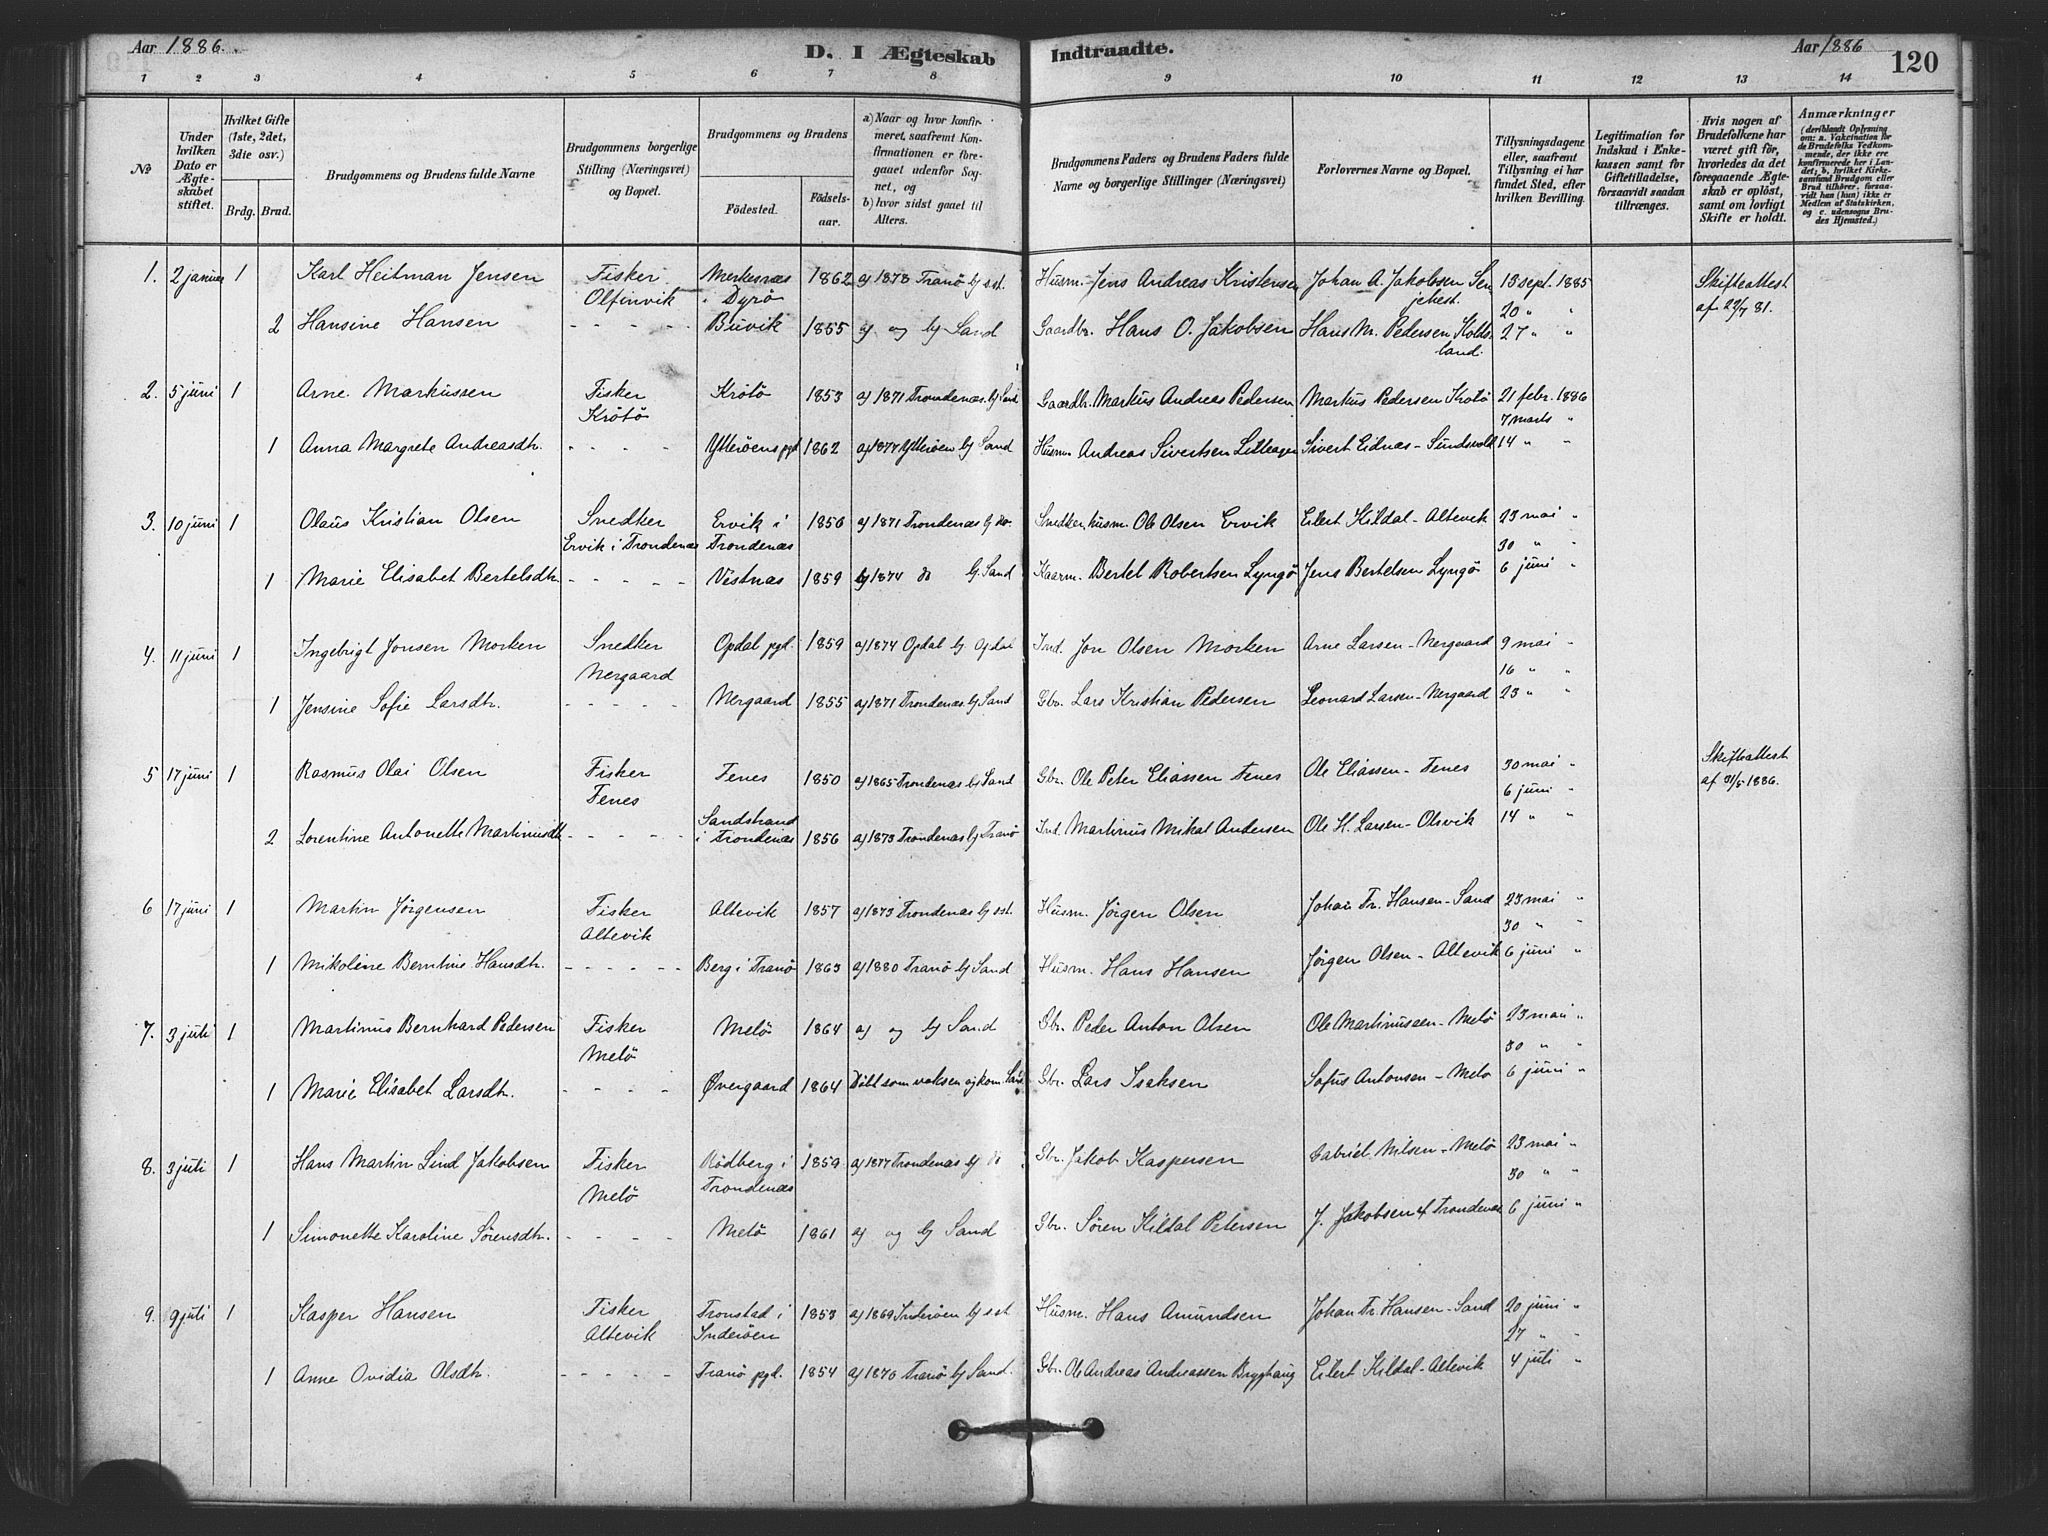 Aar 1886.
D. I Ægteskab Indtraadte.
Aar 1886
120
1 2 3 4 5 6 7 8 9 10 11 12 13 14
No
Under hvilken Dato er Ægteskabet stiftet.
Hvilket Gifte (1ste, 2det, 3die osv.)
Brdg. Brud.
Brudgommens og Brudens fulde Navne
Brudgommens borgerlige Stilling (Næringsvei) og Bopæl.
Brudgommens og Brudens
Fødested.
Fødselsaar.
a) Naar og hvor konfirmeret, saafremt Konfirmationen er foregaaet udenfor Sognet, og
b) hvor sidst gaaet til Alters.
Brudgommens Faders og Brudens Faders fulde Navne og borgerlige Stillinger (Næringsvei)
Forlovernes Navne og Bopæl.
Tillysningsdagene eller, saafremt Tillysning ei har fundet Sted, efter hvilken Bevilling.
Legitimation for Indskud i Enkekassen samt for Giftetilladelse, forsaavidt saadan tiltrænges.
Hvis nogen af Brudefolkene har været gift før, hvorledes da det foregaaende Ægteskab er opløst, samt om lovligt Skifte er holdt.
Anmærkninger
(deriblandt Oplysning om: a. Vakcination for de Brudefolks Vedkommende, der ikke ere konfirmerede her i Landet; b. hvilket Kirkesamfund Brudgom eller Brud tilhører, forsaavidt han (hun) ikke er Medlem af Statskirken, og c. udensogns Brudes Hjemsted.)
1. 2 januar 1 Karl Heitman Jensen Fisker Merkesnæs 1862 a) 1878 Tranö b) sst. Husm. Jens Andreas Kristensen Johan A. Jakobsen Sen 13 sept. 1885 Skifteattest
Olfenvik i Dyrö jehest 20 " " af 29/7 81.
2 Hansine Hansen - - - - - Buvik 1855 a) og b) Sand Gaardbr. Hans O. Jakobsen Hans M. Pedersen Kolds- 27 " "
land.
2. 5 juni 1 Arne Markussen Fisker Krötö 1853 a) 1871 Trondenæs. b) Sand Gaardbr. Markus Andreas Pedersen Markus Pedersen Krötö 21 febr. 1886
Krötö 7 marts "
1 Anna Margrete Andreasdtr. - - - - Ytteröens pgd 1862 a) 1877 Ytteröen b) Sand Husm. Andreas Sivertsen Sivert Eidnæs - Sundsvold 14 " "
3. 10 juni 1 Olaus Kristian Olsen Snedker Ervik i 1850 a) 1871 Trondenæs b) do. Snedker, husm. Ole Olsen Ervik Eilert Kildal - Altevik 23 mai "
Ervik i Trondenæs Trondenæs 30 " "
1 Marie Elisabet Bertelsdtr - - - - - Vestnæs 1859 a) 1874 do b) Sand Kaarm. Bertel Robertsen Lyngö Jens Bertelsen Lyngö 6 juni "
4. 11 juni 1 Ingebrigt Jonsen Morken Snedker Opdal pgd. 1859 a) 1874 Opdal b) Opdal Ind. Jon Olsen Morken Arne Larsen - Nergaard 9 mai "
Nergaard 16 " "
1 Jensine Sofie Larsdtr. - - - - - Nergaard 1855 a) 1871 Trondenæs. b) Sand Gbr. Lars Kristian Pedersen Leonard Larsen - Nergaard 23 " "
5 17 juni 1 Rasmus Olai Olsen Fisker Fenes 1850 a) 1865 Trondenæs b) Sand Gbr. Ole Peter Eliassen Fenes Ole Eliassen - Fenes 30 mai " Skifteattest
Fenes 6 juni " af 31/5 1886.
Sandstrand
2 Lorentine Antonette Martinusdtr - - - - - i Trondenæs 1856 a) 1873 Trondenæs b) Tranö Ind. Martinus Mikal Andersen Ole H. Larsen - Olsvik 14 " "
6 17 juni 1 Martin Jörgensen Fisker Altevik 1857 a) 1873 Trondenæs b) sst. Husm. Jörgen Olsen Johan Fr. Hansen - Sand 23 mai "
Altevik 30 " "
1 Mikoline Berntine Hansdtr. - - - - - Berg i Tranö 1863 a) 1880 Tranö b) Sand Husm. Hans Hansen Jörgen Olsen - Altevik 6 juni "
7. 3 juli 1 Martinus Bernhard Pedersen Fisker Melö 1864 a) og b) Sand Gbr. Peder Anton Olsen Ole Martinussen - Melö 23 mai "
Melö 30 " "
1 Marie Elisabet Larsdtr. - - - - Øvergaard 1864 Döbt som voksen og kom. Sand Gbr. Lars Iseksen Sofus Antonsen - Melö 6 juni "
8. 3 juli 1 Hans Martin Lind Jakobsen Fisker Rödberg i 1859 a) 1877 Trondenæs b) do Gbr. Jakob Kaspersen Gabriel Nilsen - Melö 23 mai "
Melö Trondenæs 30 " "
1 Simonette Karoline Sörensdtr. - - - - Melö 1861 a) og b) Sand Gbr. Sören Kildal Petersen J. Jakobsen Trondenæs 6 juni "
9. 9 juli 1 Kasper Hansen Fisker Tronstad i 1853 a) 1869 Inderöen b) sst Husm. Hans Amundsen Johan Fr. Hansen - Sand 20 juni "
Altevik Inderöen 27 " "
1 Anne Ovidia Olsdtr. - - - - - Tranö pgd. 1854 a) 1870 Tranö b) Sand. Gbr. Ole Andreas Andreassen Brygghaug Eilert Kildal - Altevik 4 juli "